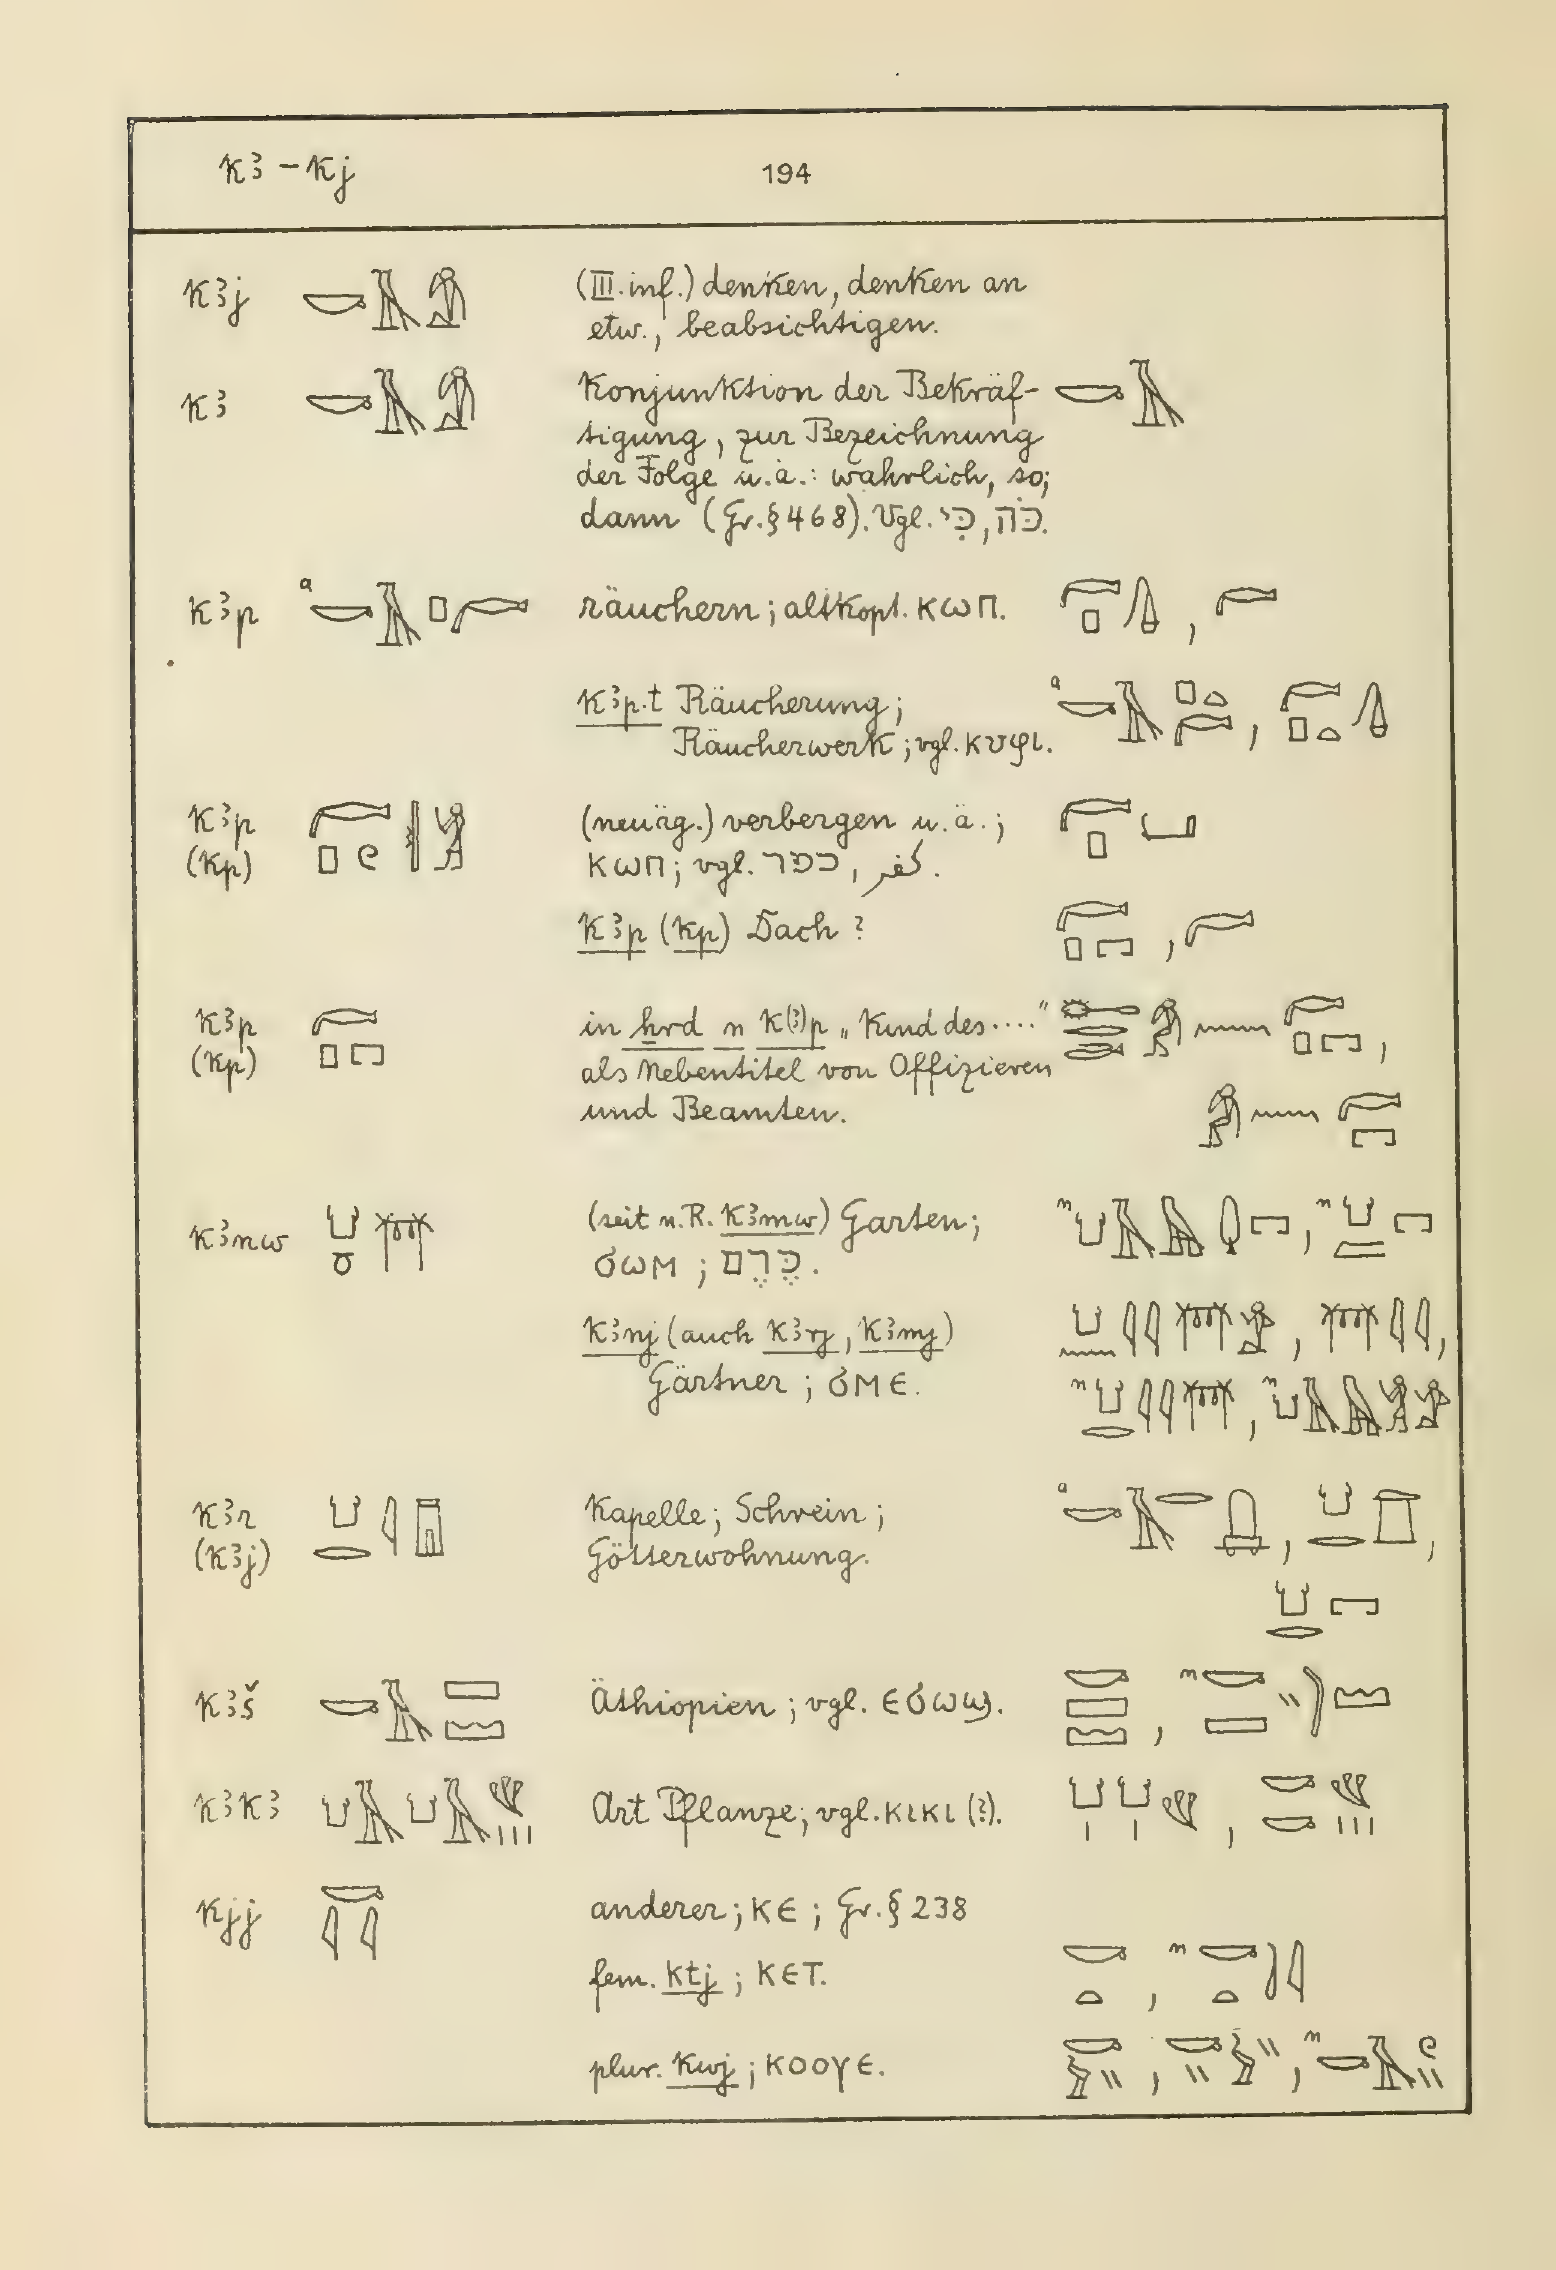 k3 – kj 194
k3j 𓎡𓄿𓀁 (III. inf.) denken, denken an
etw., beabsichtigen.
k3 𓎡𓄿𓀁 Konjunktion der Bekräf- 𓎡𓄿
tigung, zur Bezeichnung
der Folge u.ä.: wahrlich, so;
dann (Gr. § 468). Vgl. כִּי, כֹּה.
k3p a räuchern; altkopt. ⲕⲱⲡ.
k3p.t Räucherung; a
Räucherwerk; vgl. κυφι.
k3p (neuäg.) verbergen u.ä.;
(kp) ⲕⲱⲡ; vgl. כפר, كفر.
k3p (kp) Dach?
k3p in ẖrd n k(3)p „Kind des ...."
(kp) als Nebentitel von Offizieren
und Beamten.
k3nw (seit n.R. k3mw) Garten; n , n
ϭⲱⲙ; כֶּרֶם.
k3nj (auch k3rj, k3mj)
Gärtner; ϭⲙⲉ. n , n
k3r Kapelle; Schrein; a
(k3j) Götterwohnung.
k3š Äthiopien; vgl. ⲉϭⲱϣ. , n
k3k3 Art Pflanze; vgl. κικι (?).
kjj 𓎡𓇋𓇋 anderer; ⲕⲉ; Gr. § 238
fem. ktj; ⲕⲉⲧ. 𓎡𓏏, n
plur. kwj; ⲕⲟⲟⲩⲉ. , , n